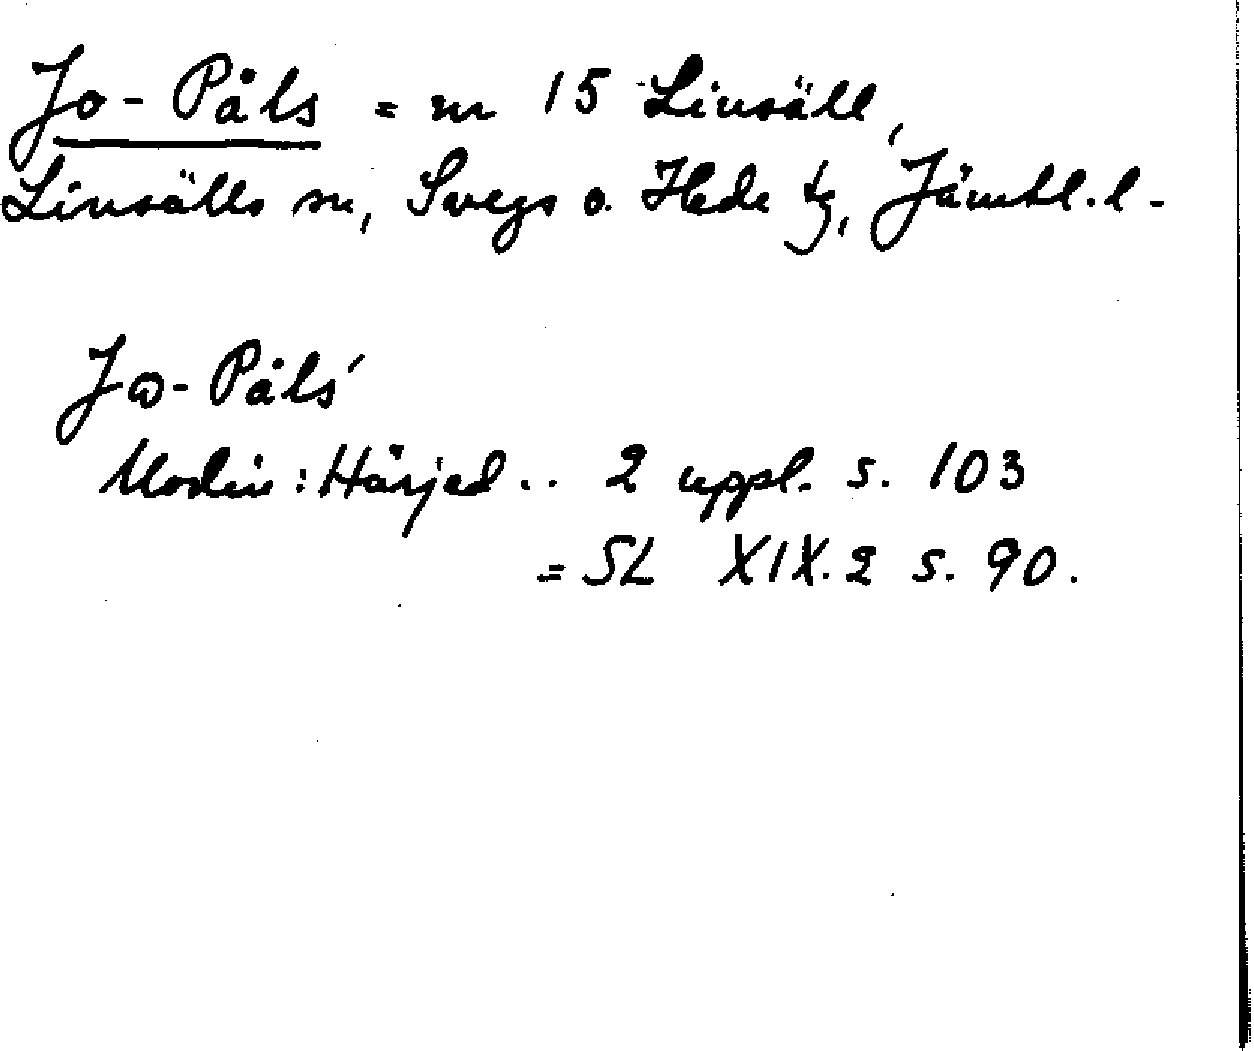 Jo-Påls = nr 15 Linsäll,
Linsälls sn, Svegs o. Hede tg, Jämtl. l.
Jo-Påls´
Modin: Härjed .. 2 uppl. s. 103
= SL XIX.2 s. 90.